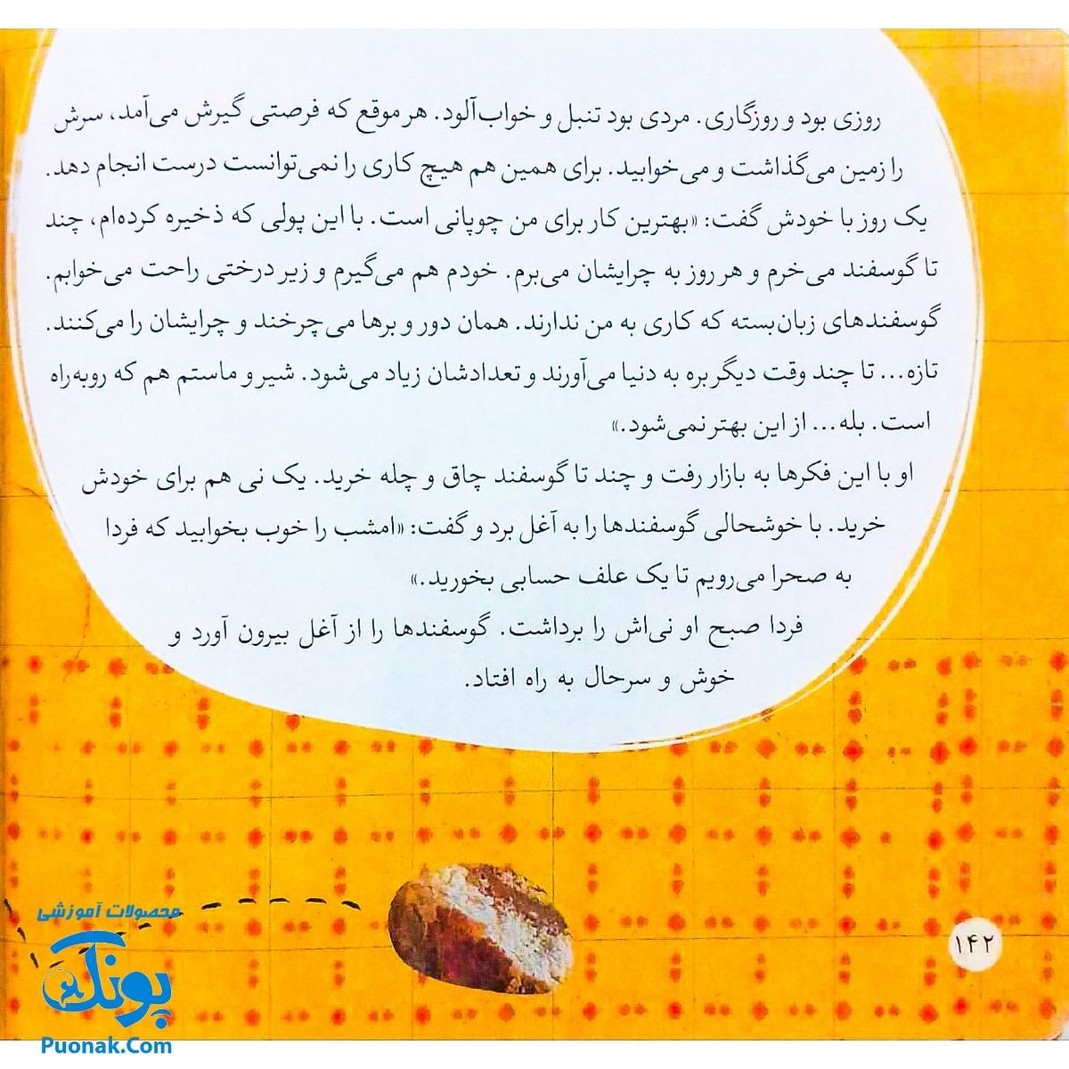 روزی بود و روزگاری. مردی بود تنبل و خواب‌آلود. هر موقع که فرصتی گیرش می‌آمد، سرش
را زمین می‌گذاشت و می‌خوابید. برای همین هم هیچ کاری را نمی‌توانست درست انجام دهد.
یک روز با خودش گفت: «بهترین کار برای من چوپانی است. با این پولی که ذخیره کرده‌ام، چند
تا گوسفند می‌خرم و هر روز به چرایشان می‌برم. خودم هم می‌گیرم و زیر درختی راحت می‌خوابم.
گوسفندهای زبان‌بسته که کاری به من ندارند. همان دور و برها می‌چرخند و چرایشان را می‌کنند.
تازه... تا چند وقت دیگر بره به دنیا می‌آورند و تعدادشان زیاد می‌شود. شیر و ماستم هم که روبه‌راه
است. بله... از این بهتر نمی‌شود.»
او با این فکرها به بازار رفت و چند تا گوسفند چاق و چله خرید. یک نی هم برای خودش
خرید. با خوشحالی گوسفندها را به آغل برد و گفت: «امشب را خوب بخوابید که فردا
به صحرا می‌رویم تا یک علف حسابی بخورید.»
فردا صبح او نی‌اش را برداشت. گوسفندها را از آغل بیرون آورد و
خوش و سرحال به راه افتاد.
محصولات آموزشی
پونک
Puonak.Com
۱۴۲